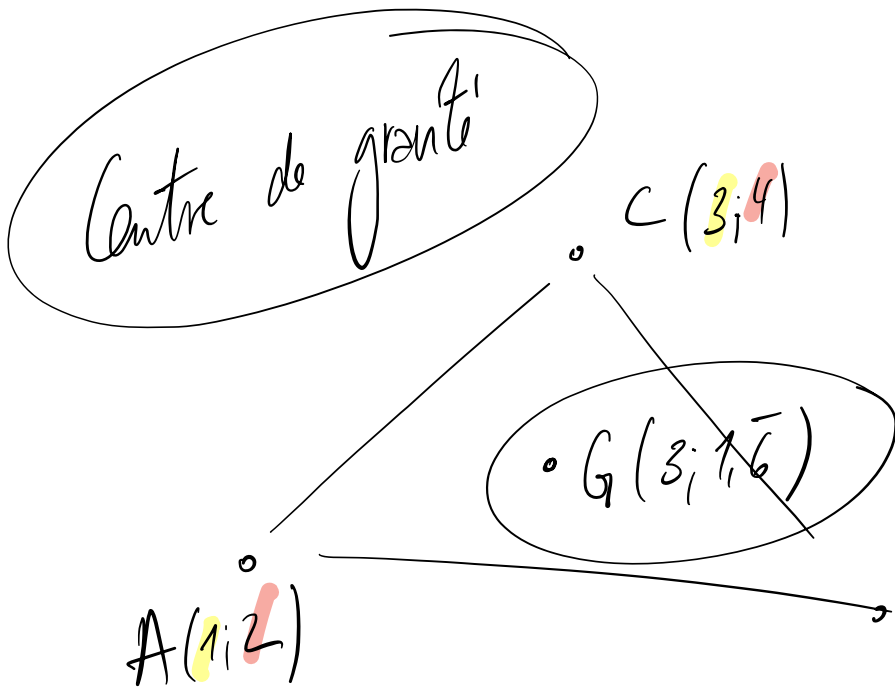 Centre de gravité
C (3;4)
G (3; 1,6̅)
A (1;2)